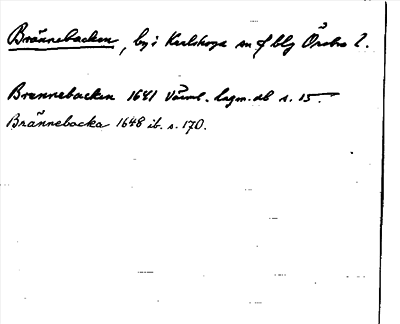 Brännebacken, by i Karlskoga sn o f blg Örebro l.
Brennebacken 1641 Värml. lagm. db s. 15.
Brännebacka 1648 ib. s. 170.